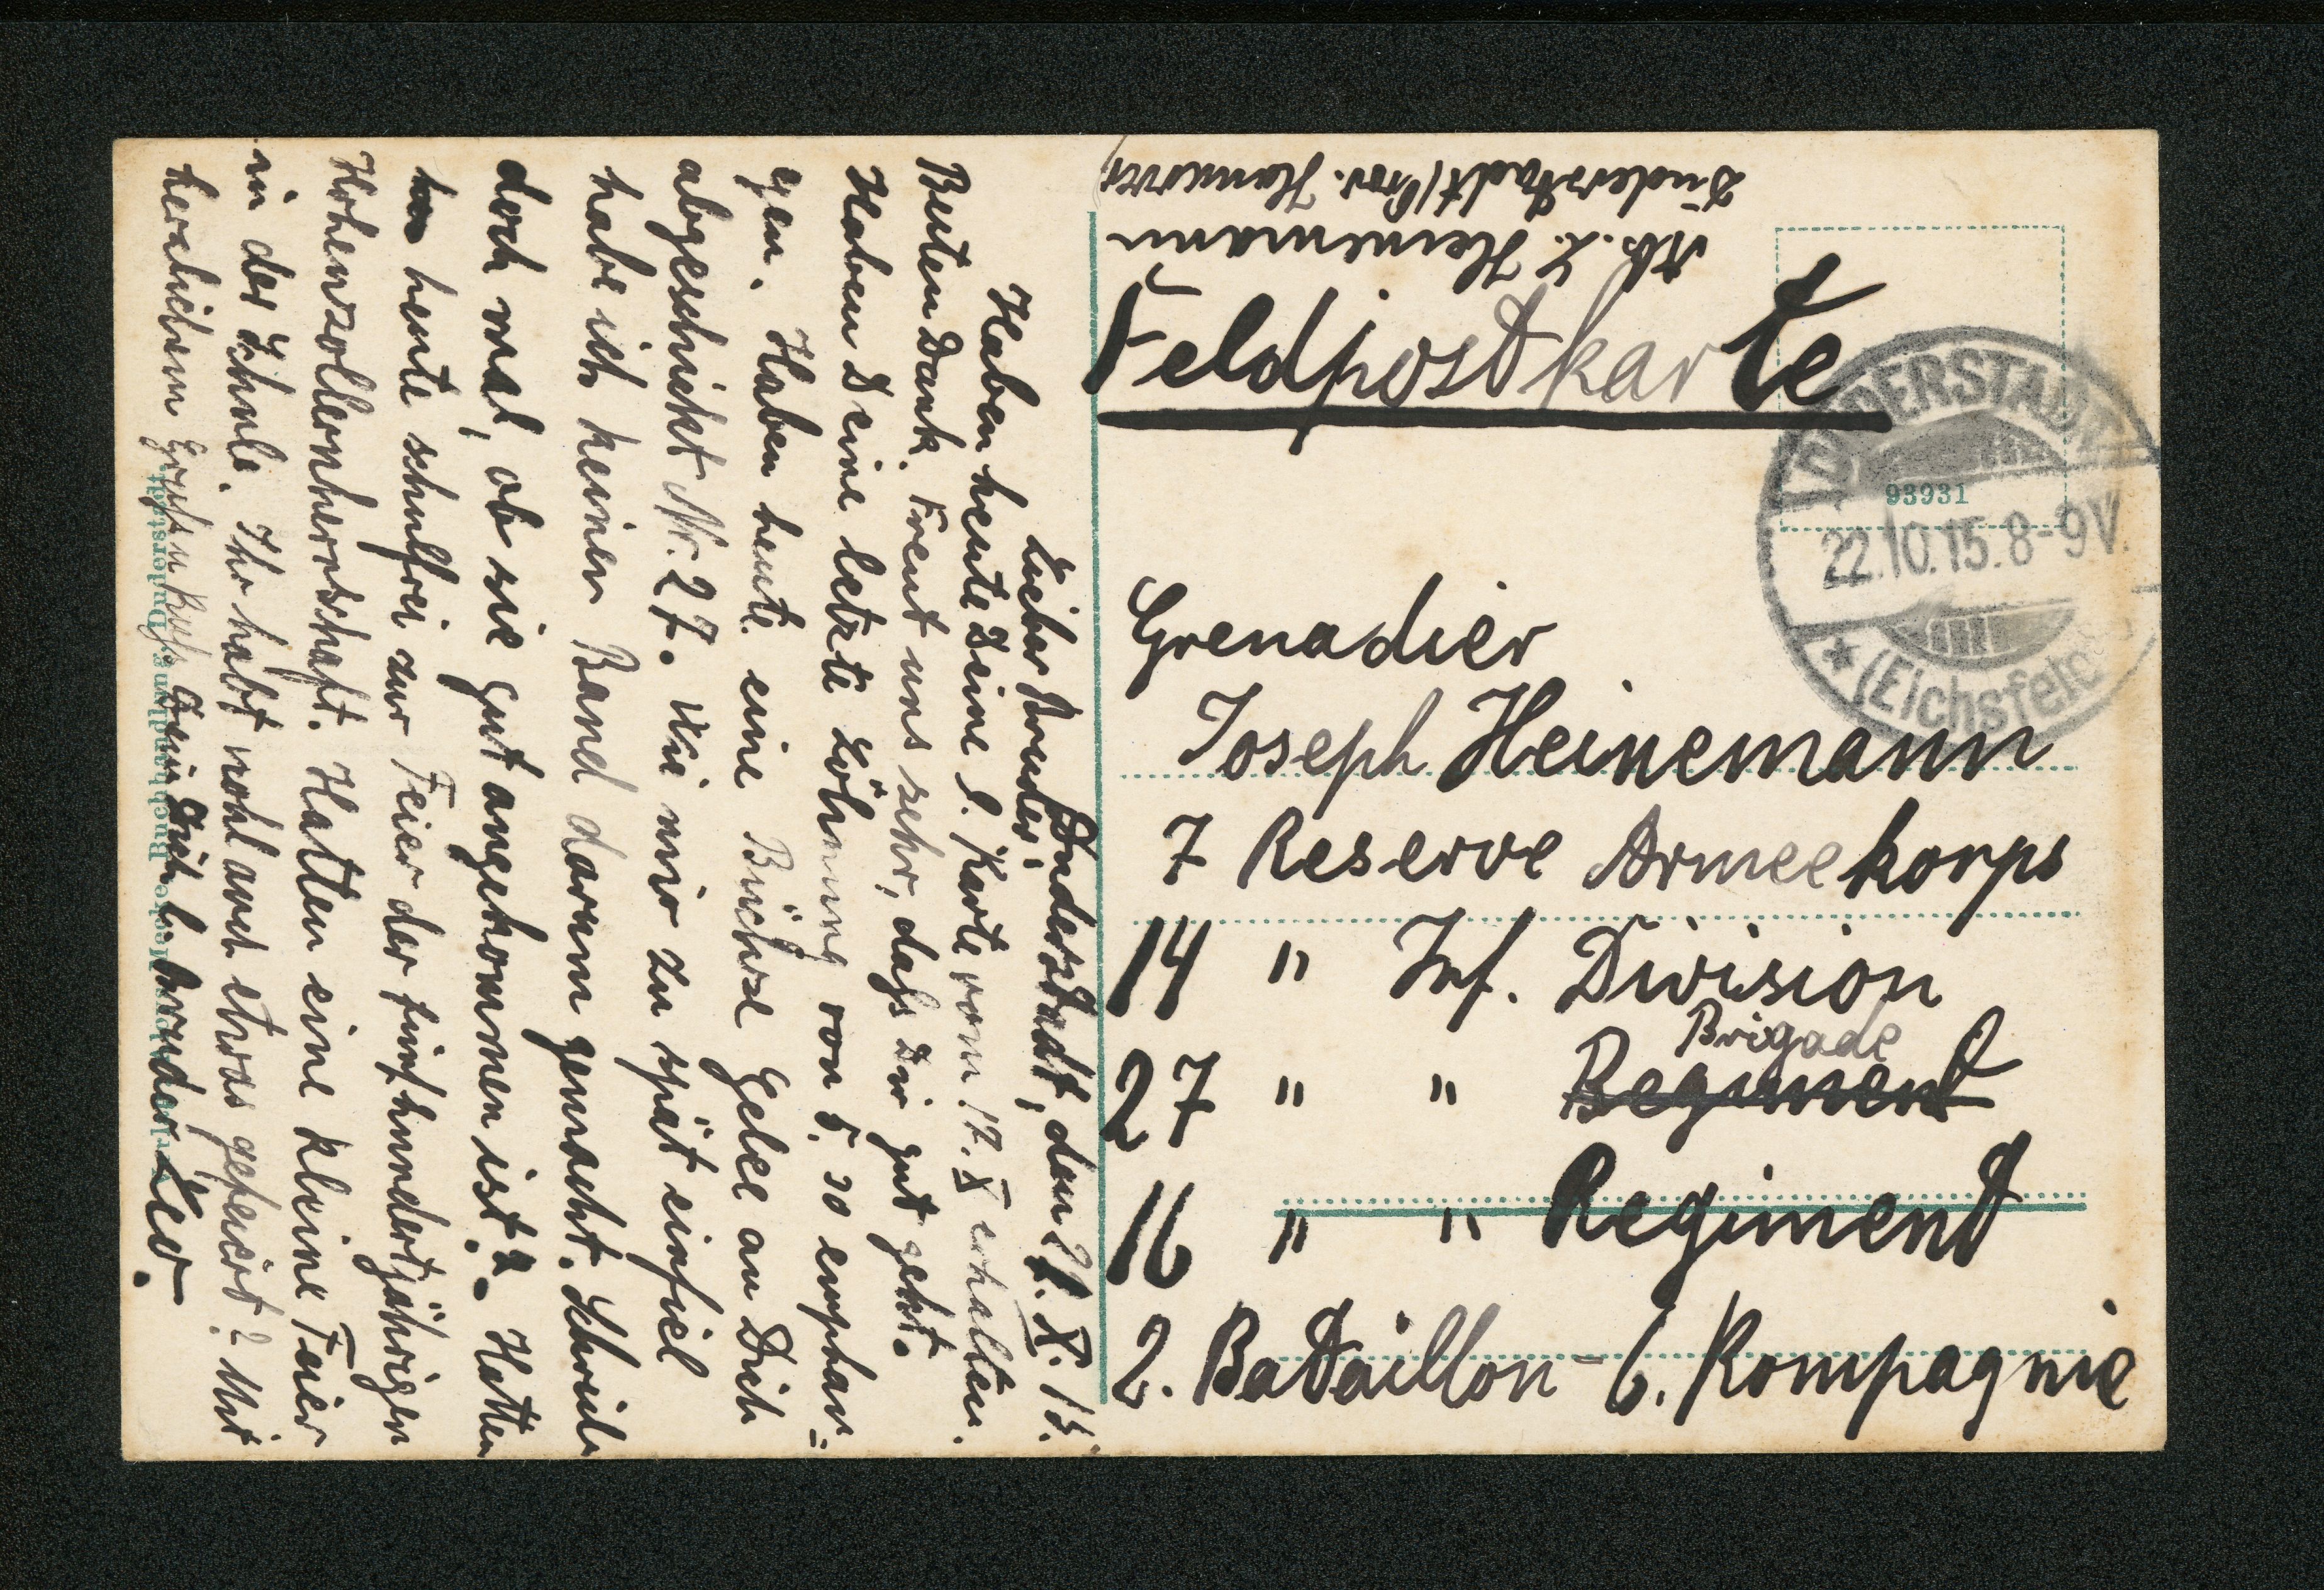 Duderstadt, den 21. X. 15.
Lieber Bruder!
Haben heute Deine l. Karte vom 17. X erhalten.
Besten Dank. Freut uns sehr, daß Dir gut geht.
Haben Deine letzte Löhnung von 5,30 empfan=
gen. Haben heute eine Büchse Gelee an Dich
abgeschickt Nr. 27. Wie mir zu spät einfiel
habe ich keinen Band darum gemacht. Schreib
doch mal, ob sie gut angekommen ist?. Hatten
heute schulfrei zur Feier der fünfhundertjährigen
Hohenzollernherrschaft. Hatten eine kleine Feier
in der Schule. Ihr habt wohl auch etwas gefeiert? Mit
herzlichem Gruß u. Kuß Dein Dich l. Bruder Leo.
Abs. L. Heinemann
Duderstadt (Prov. Hannover
Feldpostkarte
DUDERSTADT
93931
22.10.15.8-9V.
* (Eichsfeld)
Grenadier
Joseph Heinemann
7 Reserve Armeekorps
14 " Inf. Division
Brigade
27 " " Regiment
16 " " Regiment
2. Bataillon - 6. Kompagnie